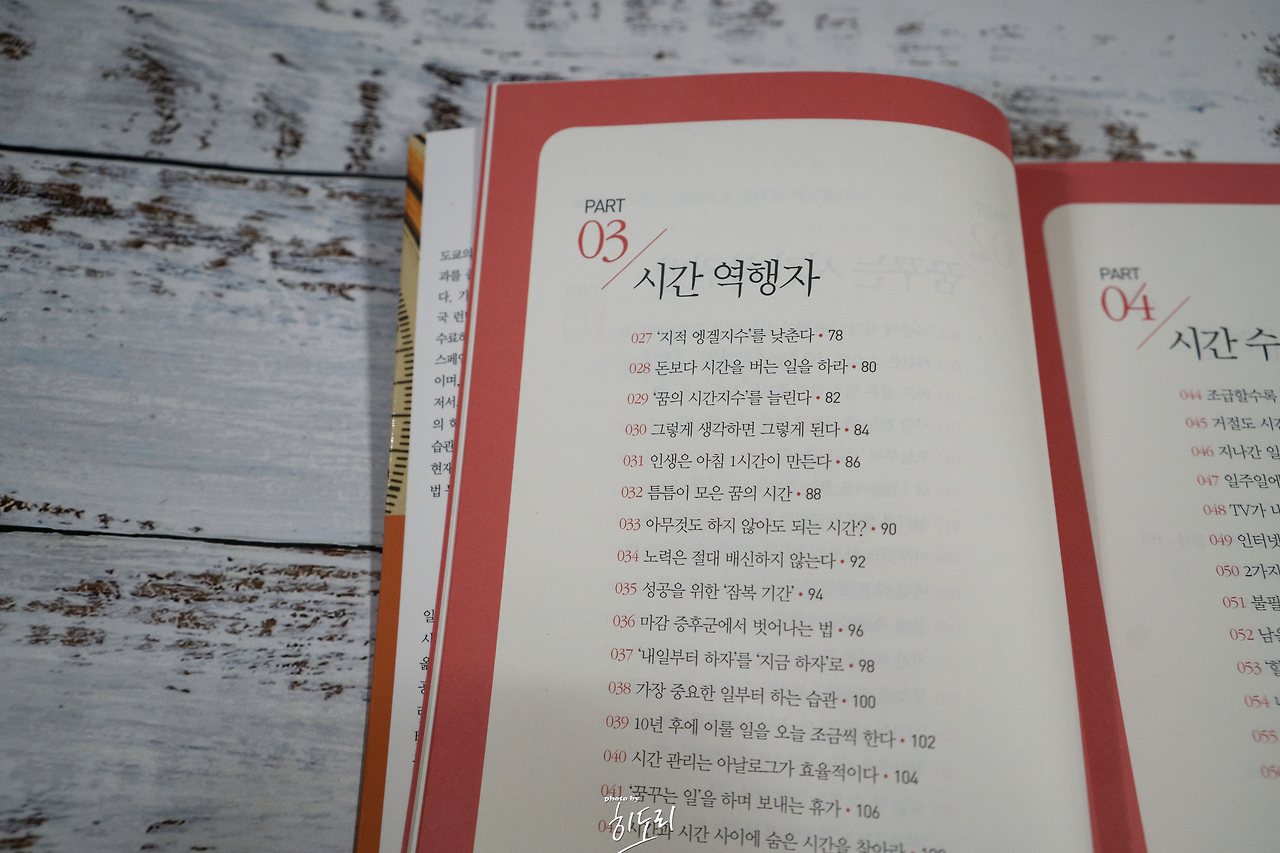 도쿄의
과를
다. 기
국 런던
수료하
스페인
이며,
저서
의 하
습관
현재
법
PART
03
시간 역행자
027 ‘지적 엥겔지수’를 낮춘다 • 78
028 돈보다 시간을 버는 일을 하라 • 80
029 ‘꿈의 시간지수’를 늘린다 • 82
030 그렇게 생각하면 그렇게 된다 • 84
031 인생은 아침 1시간이 만든다 • 86
032 틈틈이 모은 꿈의 시간 • 88
033 아무것도 하지 않아도 되는 시간? • 90
034 노력은 절대 배신하지 않는다 • 92
035 성공을 위한 ‘잠복 기간’ • 94
036 마감 증후군에서 벗어나는 법 • 96
037 ‘내일부터 하자’를 ‘지금 하자’로 • 98
038 가장 중요한 일부터 하는 습관 • 100
039 10년 후에 이룰 일을 오늘 조금씩 한다 • 102
040 시간 관리는 아날로그가 효율적이다 • 104
041 ‘꿈꾸는 일’을 하며 보내는 휴가 • 106
시간과 시간 사이에 숨은 시간을 찾아라 •
PART
04
시간 수
044 조급할수록
045 거절도 시간
046 지나간 일
047 일주일에
048 TV가 내
049 인터넷
050 2가지
051 불필
052 남을
053 ‘할
054
055
photo by
히도리